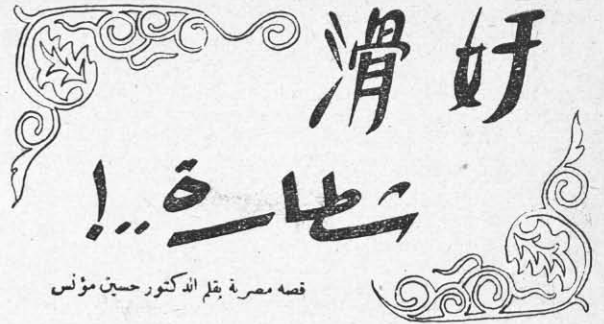 奸滑
شطارة..!
قصه مصرية بقلم الدكتور حسين مؤنس